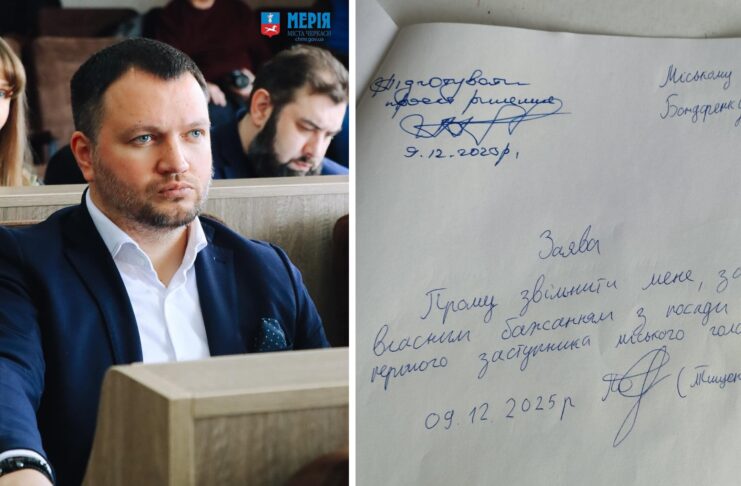 МЕРІЯ
МІСТА ЧЕРКАСИ
chmr.gov.ua
Підготувати
проєкт рішення
9.12.2025р.
Міському
Бондаренку
Заява
Прошу звільнити мене, за
власним бажанням з посади
першого заступника міського голо
09.12.2025р (Тищен